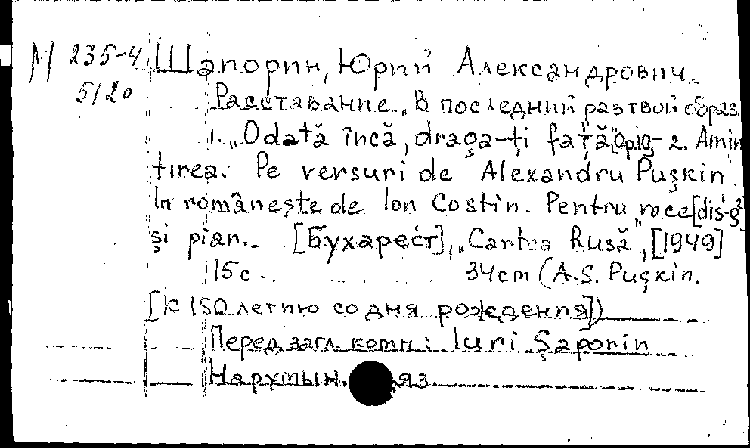 М 235-4
5120
Шапорин, Юрий Александрович.
Расставание. "В последний раз твой образ
1. "Odată încă, draga-ți față" Op.10-2. Amin
tirea. Pe versuri de Alexandru Pușkin
în românește de Ion Costin. Pentru voce [dis-g²]
și pian. [Бухарест], "Cartea Rusă", [1949]
15 c 34 cm (A.S. Pușkin.
[к 150 летию со дня рождения])
Перед загл. комп: Iuri Șaporin
На румын. яз.